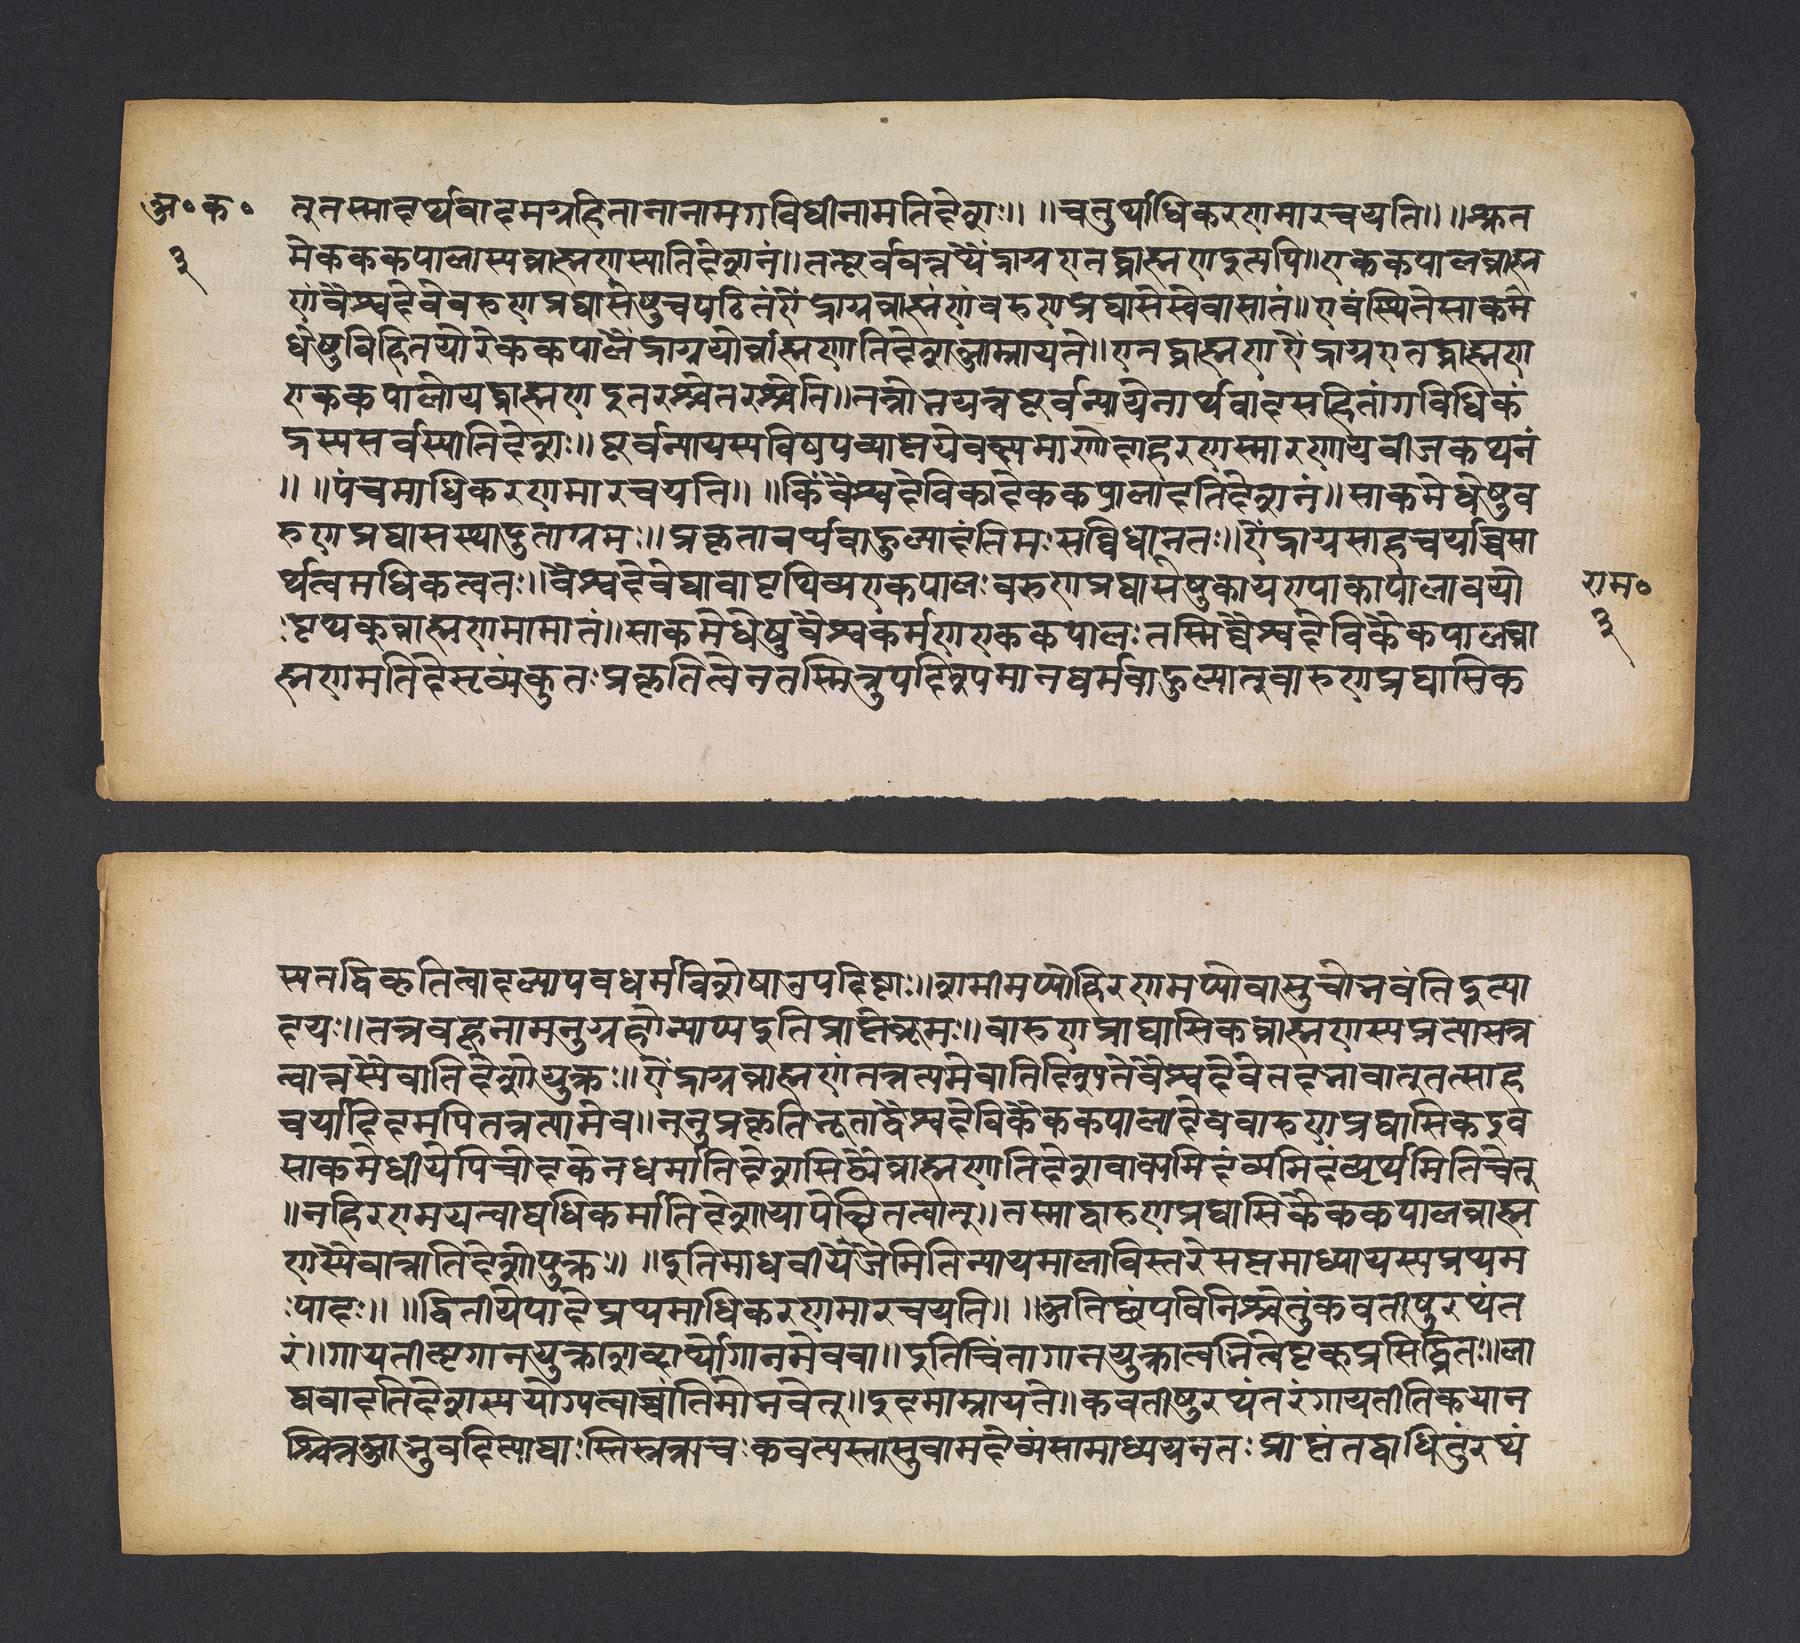 अ॰ क॰
३
त्तुतस्मादर्थवादमग्रहितानानामगविधीनामतिदेशः॥ ॥चतुर्थाधिकरणमारचयति॥ ॥श्रुत
मेकककपालास्यब्राह्मणस्यातिदेशनं॥तत्पूर्ववन्नथैंद्राग्नएतद्ब्राह्मणइत्यपि॥एककपालब्राह्म
णंवैश्वदेवेवरुणप्रघासेषुचपठितंऐंद्राग्नब्राह्मंणंवरुणप्रघासेस्वेवासातं॥एवंस्थितेसाकमे
धेषुविहितयोरेककपालैंद्राग्नयोर्ब्राह्मणातिदेशआम्नायते॥एतद्ब्राह्मणऐंद्राग्नएतद्ब्राह्मण
एककपालोयद्ब्राह्मणइतरश्चेतरश्चेति॥तत्रोत्तयत्रपूर्वन्यायेनार्थवादसहितांगविधिकं
द्रस्यसर्वस्यातिदेशः॥पूर्वन्यायस्यविषपव्याप्तयेवक्ष्यमाणोदाहरणस्मारणायवीजकथनं
॥ ॥पंचमाधिकरणमारचयति॥ ॥किंवैश्वदेविकादेककपालादतिदेशनं॥साकमेधेषुव
रुणप्रघासस्थादुताग्रमः॥प्रकृतावर्थवाहुल्यादंतिमःसन्निधानतः॥ऐंद्राग्नसाहचर्याच्चसा
र्थत्वमधिकत्वतः॥वैश्वदेवेद्यावापृथिव्यएकपालःवरुणप्रघासेषुकायएपाकापालावयो
ःपृथक्ब्राह्मणमामातं॥साकमेधेषुवैश्वकर्मणएककपालःतस्मिन्वैश्वदेविकैकपालब्रा
ह्मणमतिदेसृव्यंकुतःप्रकृतित्वेनतस्मिन्नुपदिश्यमानधर्मवाहुल्यात्नुवारुणप्रघासिक
राम॰
३
स्यतद्विकृतित्वादल्यापवधर्मविशेषाउपदिष्टाः॥शमीमप्योहिरण्मप्योवास्रुचोभवंतिइत्या
दयः॥तत्रवहूनामनुग्रहोन्याप्यइतिप्राप्तेव्रूमः॥वारुणप्राघासिकब्राह्मणस्यप्रत्यासन्न
त्वात्तस्यैवातिदेशोयुक्तः॥ऐंद्राग्नब्राह्मणंतत्रत्यमेवातिदिश्यतेवैश्वदेवेतदभावात्तत्साह
चर्यादिदमपितत्रत्यामेव॥ननुप्रकृतिभूताद्वैश्वदेविकैककपालादेववारुणप्रघासिकइव
साकमेधीयेपिचोदकेनधर्मातिदेशसिद्धेब्राह्मणातिदेशवाक्यमिदंव्यमिदंव्यर्थमितिचेत्
॥नहिरण्मयत्वाद्यधिकर्मातिदेशायापेक्षितत्वात्॥तस्माद्वारुणप्रघासिकैककपालब्राह्म
णस्यैवान्नातिदेशोयुक्तः॥ ॥इतिमाधवीयेजैमितिन्यायमालाविस्तरेसप्तमाध्यायस्यप्रथम
ःपादः॥ ॥द्वितीयेपादेप्रथमाधिकरणमारचयति॥ ॥अतिष्ठंपविनिश्चेतुंकवतीषुरथंत
रं॥गायतीत्यृगानयुक्ताशव्दार्थोगानमेववा॥इतिचिंतागानयुक्तात्वमितेष्टक्प्रसिद्धितः॥ला
घवादतिदेशस्ययोग्यत्वाच्चांतिमोभवेत्॥इदमाम्नायते॥कवतीषुरथंतरंगायतीतिकयान
श्चित्रआभुवदित्याद्याःस्तिस्रऋचःकवत्यस्तासुवामदेव्यंसामाध्ययनतःप्राप्तंतद्वाधितुंरथं